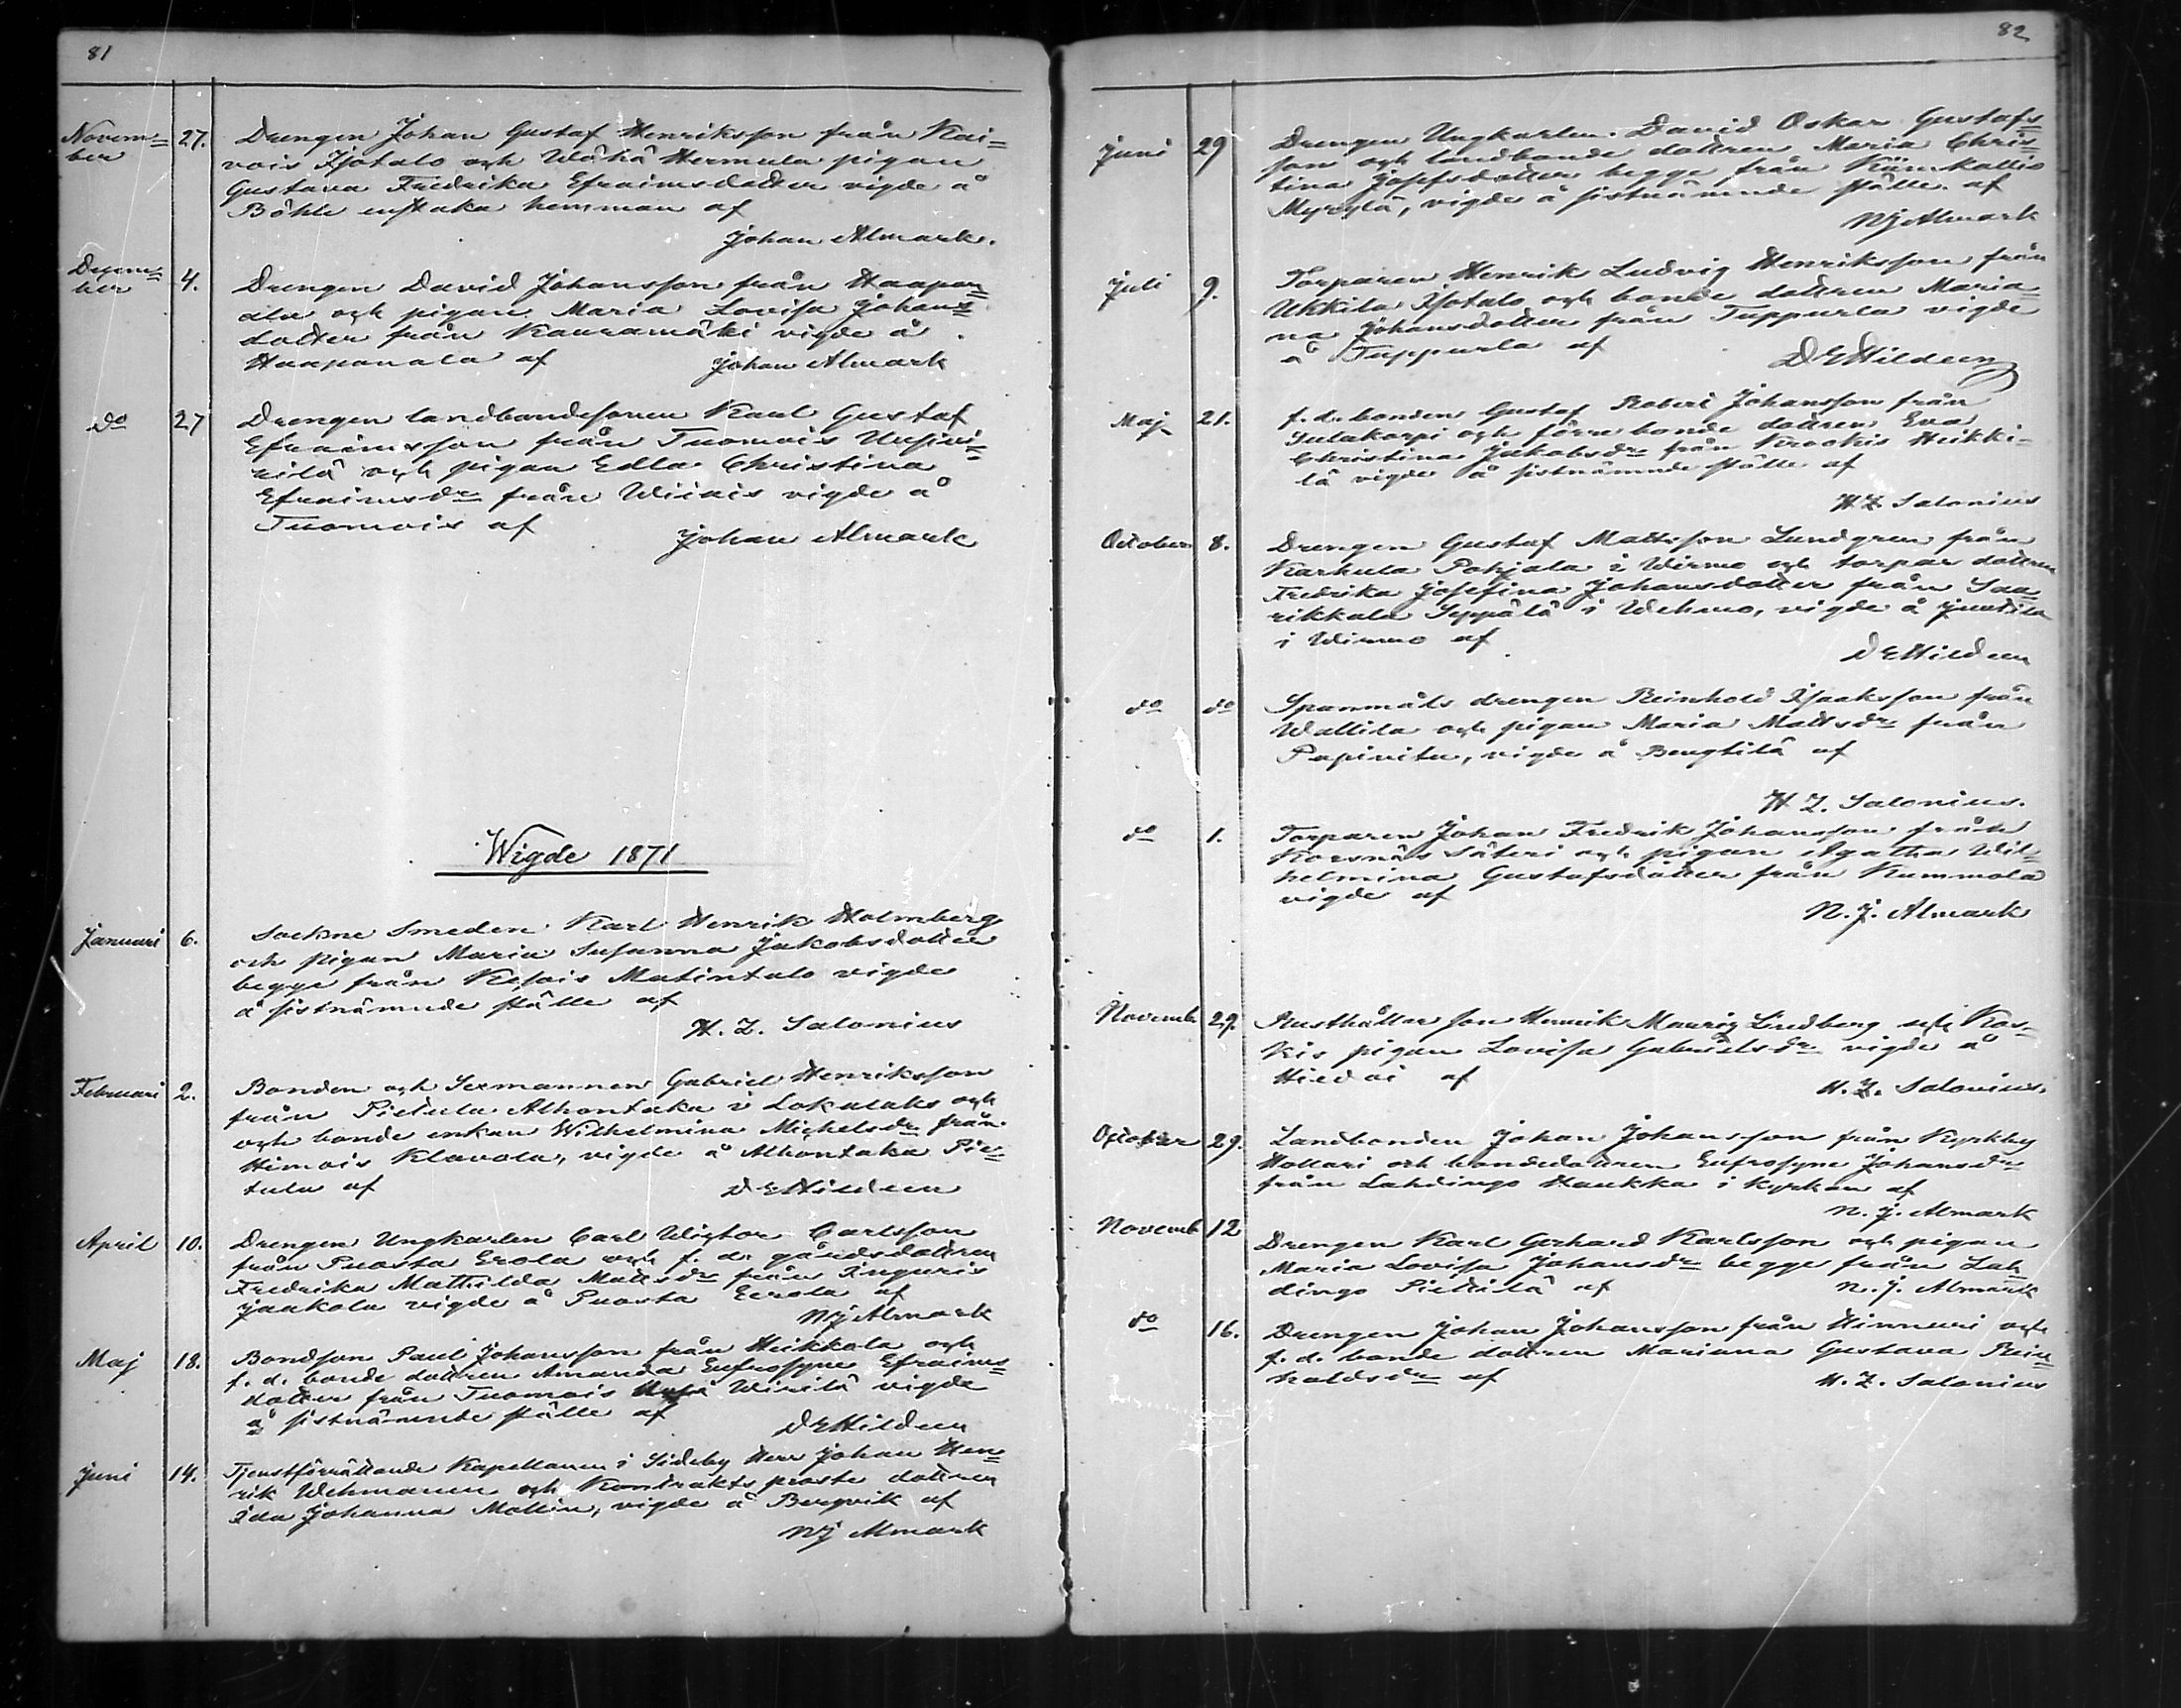 81
Novem= 27. Drengen Johan Gustaf Henriksson från Kai=
ber vois Isotalo och Wähä Hermula pigan
Gustava Fredrika Efraimsdotter vigde å
Böhle enstaka hemman af
Johan Almark.
Decem= 4. Drengen David Johansson från Haapan=
ber ala och pigan Maria Lovisa Johans=
dotter från Kauramäki vigde å
Haapanala af Johan Almark
do 27 Drengen landbondesonen Karl Gustaf
Efraimsson från Tuomois
och pigan Edla Christina
Efraimsdr från Wiiais vigde å
Tuomois af
Johan Almark
Wigde 1871
Januari 6. Sockne Smeden Karl Henrik Holmberg
och pigan Maria Susanna Jakobsdotter
begge från Kesois Matintalo vigde
å sistnämnde ställe af
H. Z. Salonius
Februari 2. Bonden och Sexmannen Gabriel Henriksson
från Pietula Alhontaka i Lokalaks och
och bonde enkan Wilhelmina Michelsdr från
Himois Klavola, vigde å Alhontaka Pie=
tula af D E Hildeen
April 10. Drengen Ungkarlen Carl Wictor Carlsson
från Puosta Erola och f. d. gårdsdottren
Fredrika Mathilda Mattsdr från Inguris
Jaakola vigde å Puosta Eerola af
N J Almark
Maj 18. Bondson Paul Johansson från Heikkola och
f. d. bonde dottren Amanda Eufrosyne Efraims=
dotter från Tuomois Wirilä vigde
å sistnämnde ställe af
D E Hildeen
Juni 14. Tjenstförrättande Kapellanen i Sideby Herr Johan Hen=
rik Wehmanen och Kontrakts proste dottren
Ida Johanna Mollin, vigde å Bergvik af
N J Almark
82
Juni 29 Drengen Ungkarlen David Oskar Gustafs=
son och landbonde dottren Maria Chris=
tina Josefsdotter begge från Kännkallio
Myrylä, vigde å sistnämnde ställe af
N J Almark
Juli 9. Torparen Henrik Ludvig Henriksson från
Ukkila Isotalo och bonde dottren Maria=
na Johansdotter från Tuppurla vigde
å Tuppurla af D E Hildeen
Maj 21. f. d. bonden Gustaf Robert Johansson från
Sulakorpi och förre bonde dottren Eva
Christina Jakobsdr från Krookis Heikki=
lä vigde å sistnämnde ställe af
H. Z. Salonius
October 8. Drengen Gustaf Mattsson Lundgren från
Karhula Pohjala i Wirmo och torpar dottren
Fredrika Josefina Johansdotter från Saa=
rikkala Seppälä i Wehmo, vigde å
i Wirmo af
D E Hildeen
do do Spanmåls drengen Reinhold Isaksson från
Wallila och pigan Maria Mattsdr från
Papinitu, vigde å Bengtilä af
H. Z. Salonius.
do 1. Torparen Johan Fredrik Johansson från
Korsnäs Säteri och pigan Agatha Wil=
helmina Gustafsdotter från Kummola
vigde af
N. J. Almark
Novemb 29. Rusthållar son Henrik Mauriz Lindberg och Kos=
kis pigan Lovisa Gabrielsdr vigde å
Hiedai af H. Z. Salonius.
October 29. Landbonden Johan Johansson från Kyrkby
Hollari och bondedottren Eufrosyne Johansdr
från Lahdingo Haukka i kyrkan af
N. J. Almark
Novemb 12 Drengen Karl Gerhard Karlsson och pigan
Maria Lovisa Johansdr begge från Lah=
dingo Pietilä af N. J. Almark
do 16. Drengen Johan Johansson från Hinnuri och
f. d. bonde dottren Mariana Gustava Rein=
holdsdr af H. Z. Salonius